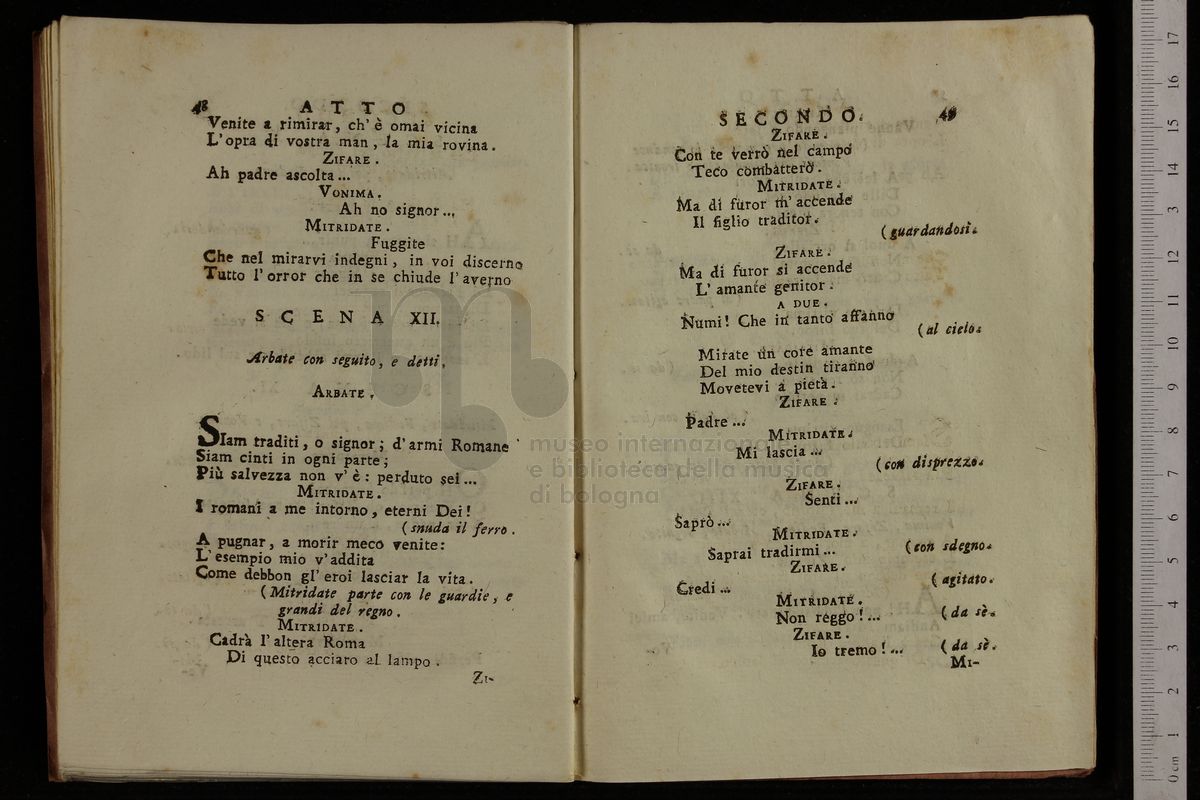 48 ATTO
Venite a rimirar, ch' è omai vicina
L' opra di vostra man, la mia rovina.
ZIFARE.
Ah padre ascolta...
VONIMA.
Ah no signor...
MITRIDATE.
Fuggite
Che nel mirarvi indegni, in voi discerno
Tutto l' orror che in se chiude l' averno
SCENA XII.
Arbate con seguito, e detti.
ARBATE.
SIam traditi, o signor; d' armi Romane
Siam cinti in ogni parte;
Più salvezza non v' è: perduto sei...
MITRIDATE.
I romani a me intorno, eterni Dei!
(snuda il ferro.
A pugnar, a morir meco venite:
L' esempio mio v' addita
Come debbon gl' eroi lasciar la vita.
(Mitridate parte con le guardie, e
grandi del regno.
MITRIDATE.
Cadrà l' altera Roma
Di questo acciaro al lampo.
ZI-
SECONDO. 49
ZIFARE.
Con te verrò nel campo
Teco combatterò.
MITRIDATE.
Ma di furor m' accende
Il figlio traditor.
(guardandosi.
ZIFARE.
Ma di furor si accende
L' amante genitor.
A DUE.
Numi! Che in tanto affanno
(al cielo.
Mirate un core amante
Del mio destin tiranno
Movetevi a pietà.
ZIFARE.
Padre...
MITRIDATE.
Mi lascia...
(con disprezzo.
ZIFARE.
Senti...
Saprò...
MITRIDATE.
Saprai tradirmi...
(con sdegno.
ZIFARE.
Credi...
(agitato.
MITRIDATE.
Non reggo!...
(da sè.
ZIFARE.
Io tremo!...
(da sè.
MI-
museo internazionale
e biblioteca della musica
di bologna
0 cm 1 2 3 4 5 6 7 8 9 10 11 12 13 14 15 16 17